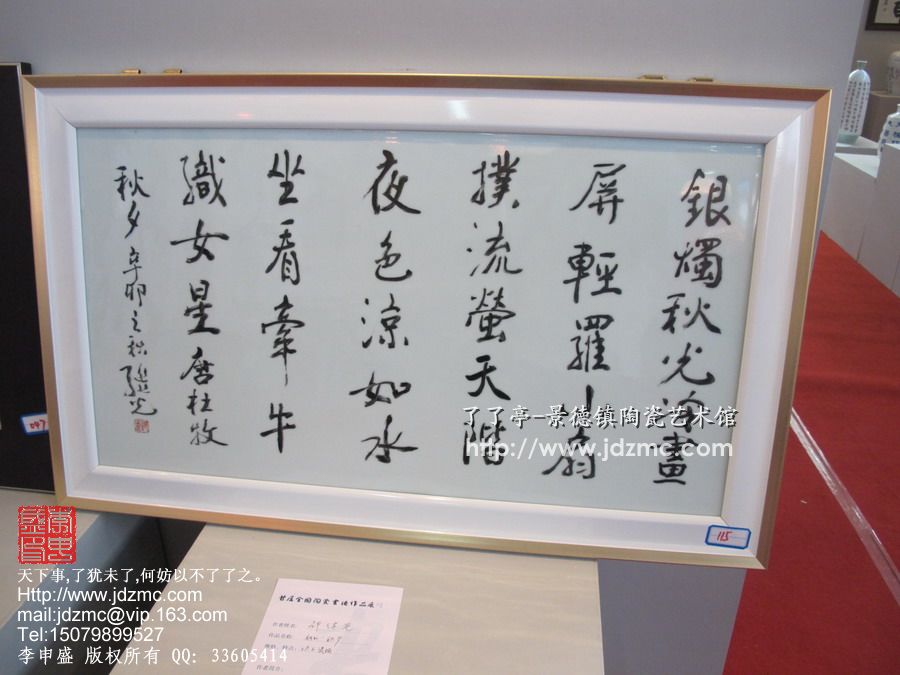 銀燭秋光冷畫
屏輕羅小扇
撲流螢天階
夜色涼如水
坐看牽牛
織女星唐杜牧
秋夕辛卯之秋
了了亭-景德镇陶瓷艺术馆
http://www.jdzmc.com
115
097
天下事,了犹未了,何妨以不了了之。
Http://www.jdzmc.com
mail:jdzmc@vip.163.com
Tel:15079899527
李申盛 版权所有 QQ: 33605414
首届全国陶瓷书法作品展
作者姓名:
作品名称: